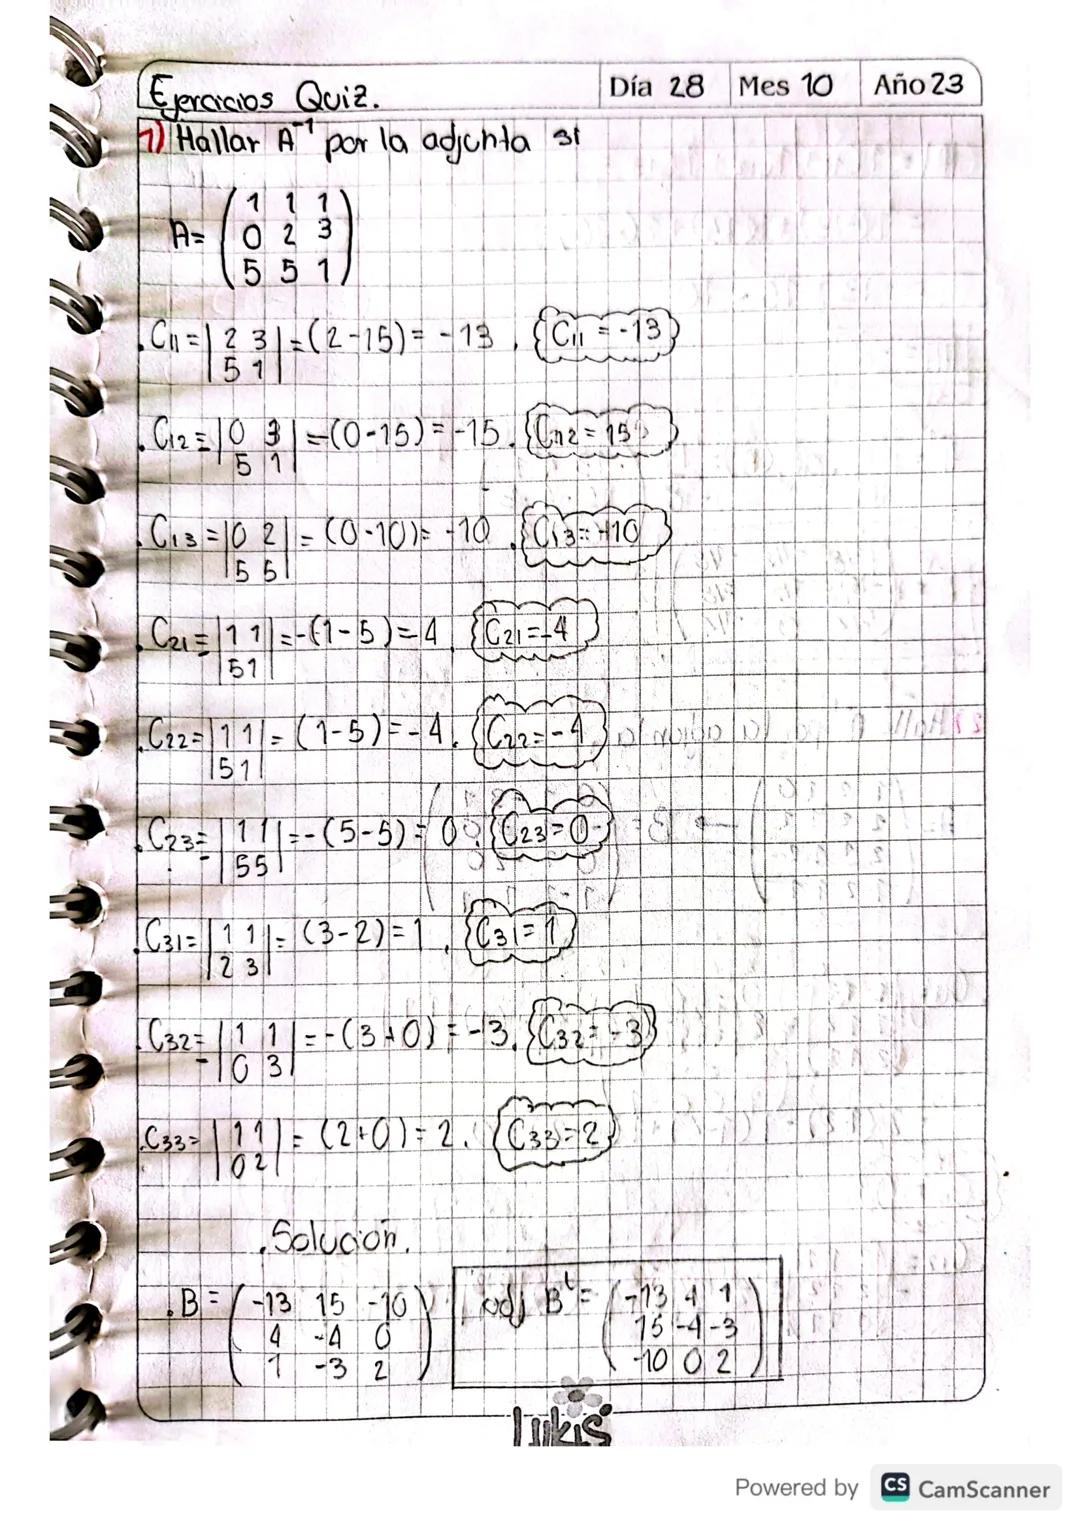 Ejercicios Quiz. Día 28 Mes 10 Año 23
1) Hallar A⁻¹ por la adjunta si
A= (1 1 1
0 2 3
5 5 1)
.C11 = |2 3| = (2-15) = -13 . C11 = -13
|5 1|
.C12 = |0 3| = -(0-15) = -15. C12 = 15
|5 1|
.C13 = |0 2| = (0-10) = -10 . C13 = -10
|5 5|
.C21 = |1 1| = -(1-5) = 4 . C21 = -4
- |5 1|
.C22 = |1 1| = (1-5) = -4. C22 = -4
|5 1|
.C23 = |1 1| = -(5-5) = 0. C23 = 0
- |5 5|
.C31 = |1 1| = (3-2) = 1 . C31 = 1
|2 3|
.C32 = |1 1| = -(3+0) = -3. C32 = -3
- |0 3|
.C33 = |1 1| = (2+0) = 2. C33 = 2
|0 2|
.Solución.
.B = (-13 15 -10
4 -4 0
1 -3 2)
adj Bᵗ = (-13 4 1
15 -4 -3
-10 0 2)
Lukis
Powered by CS CamScanner